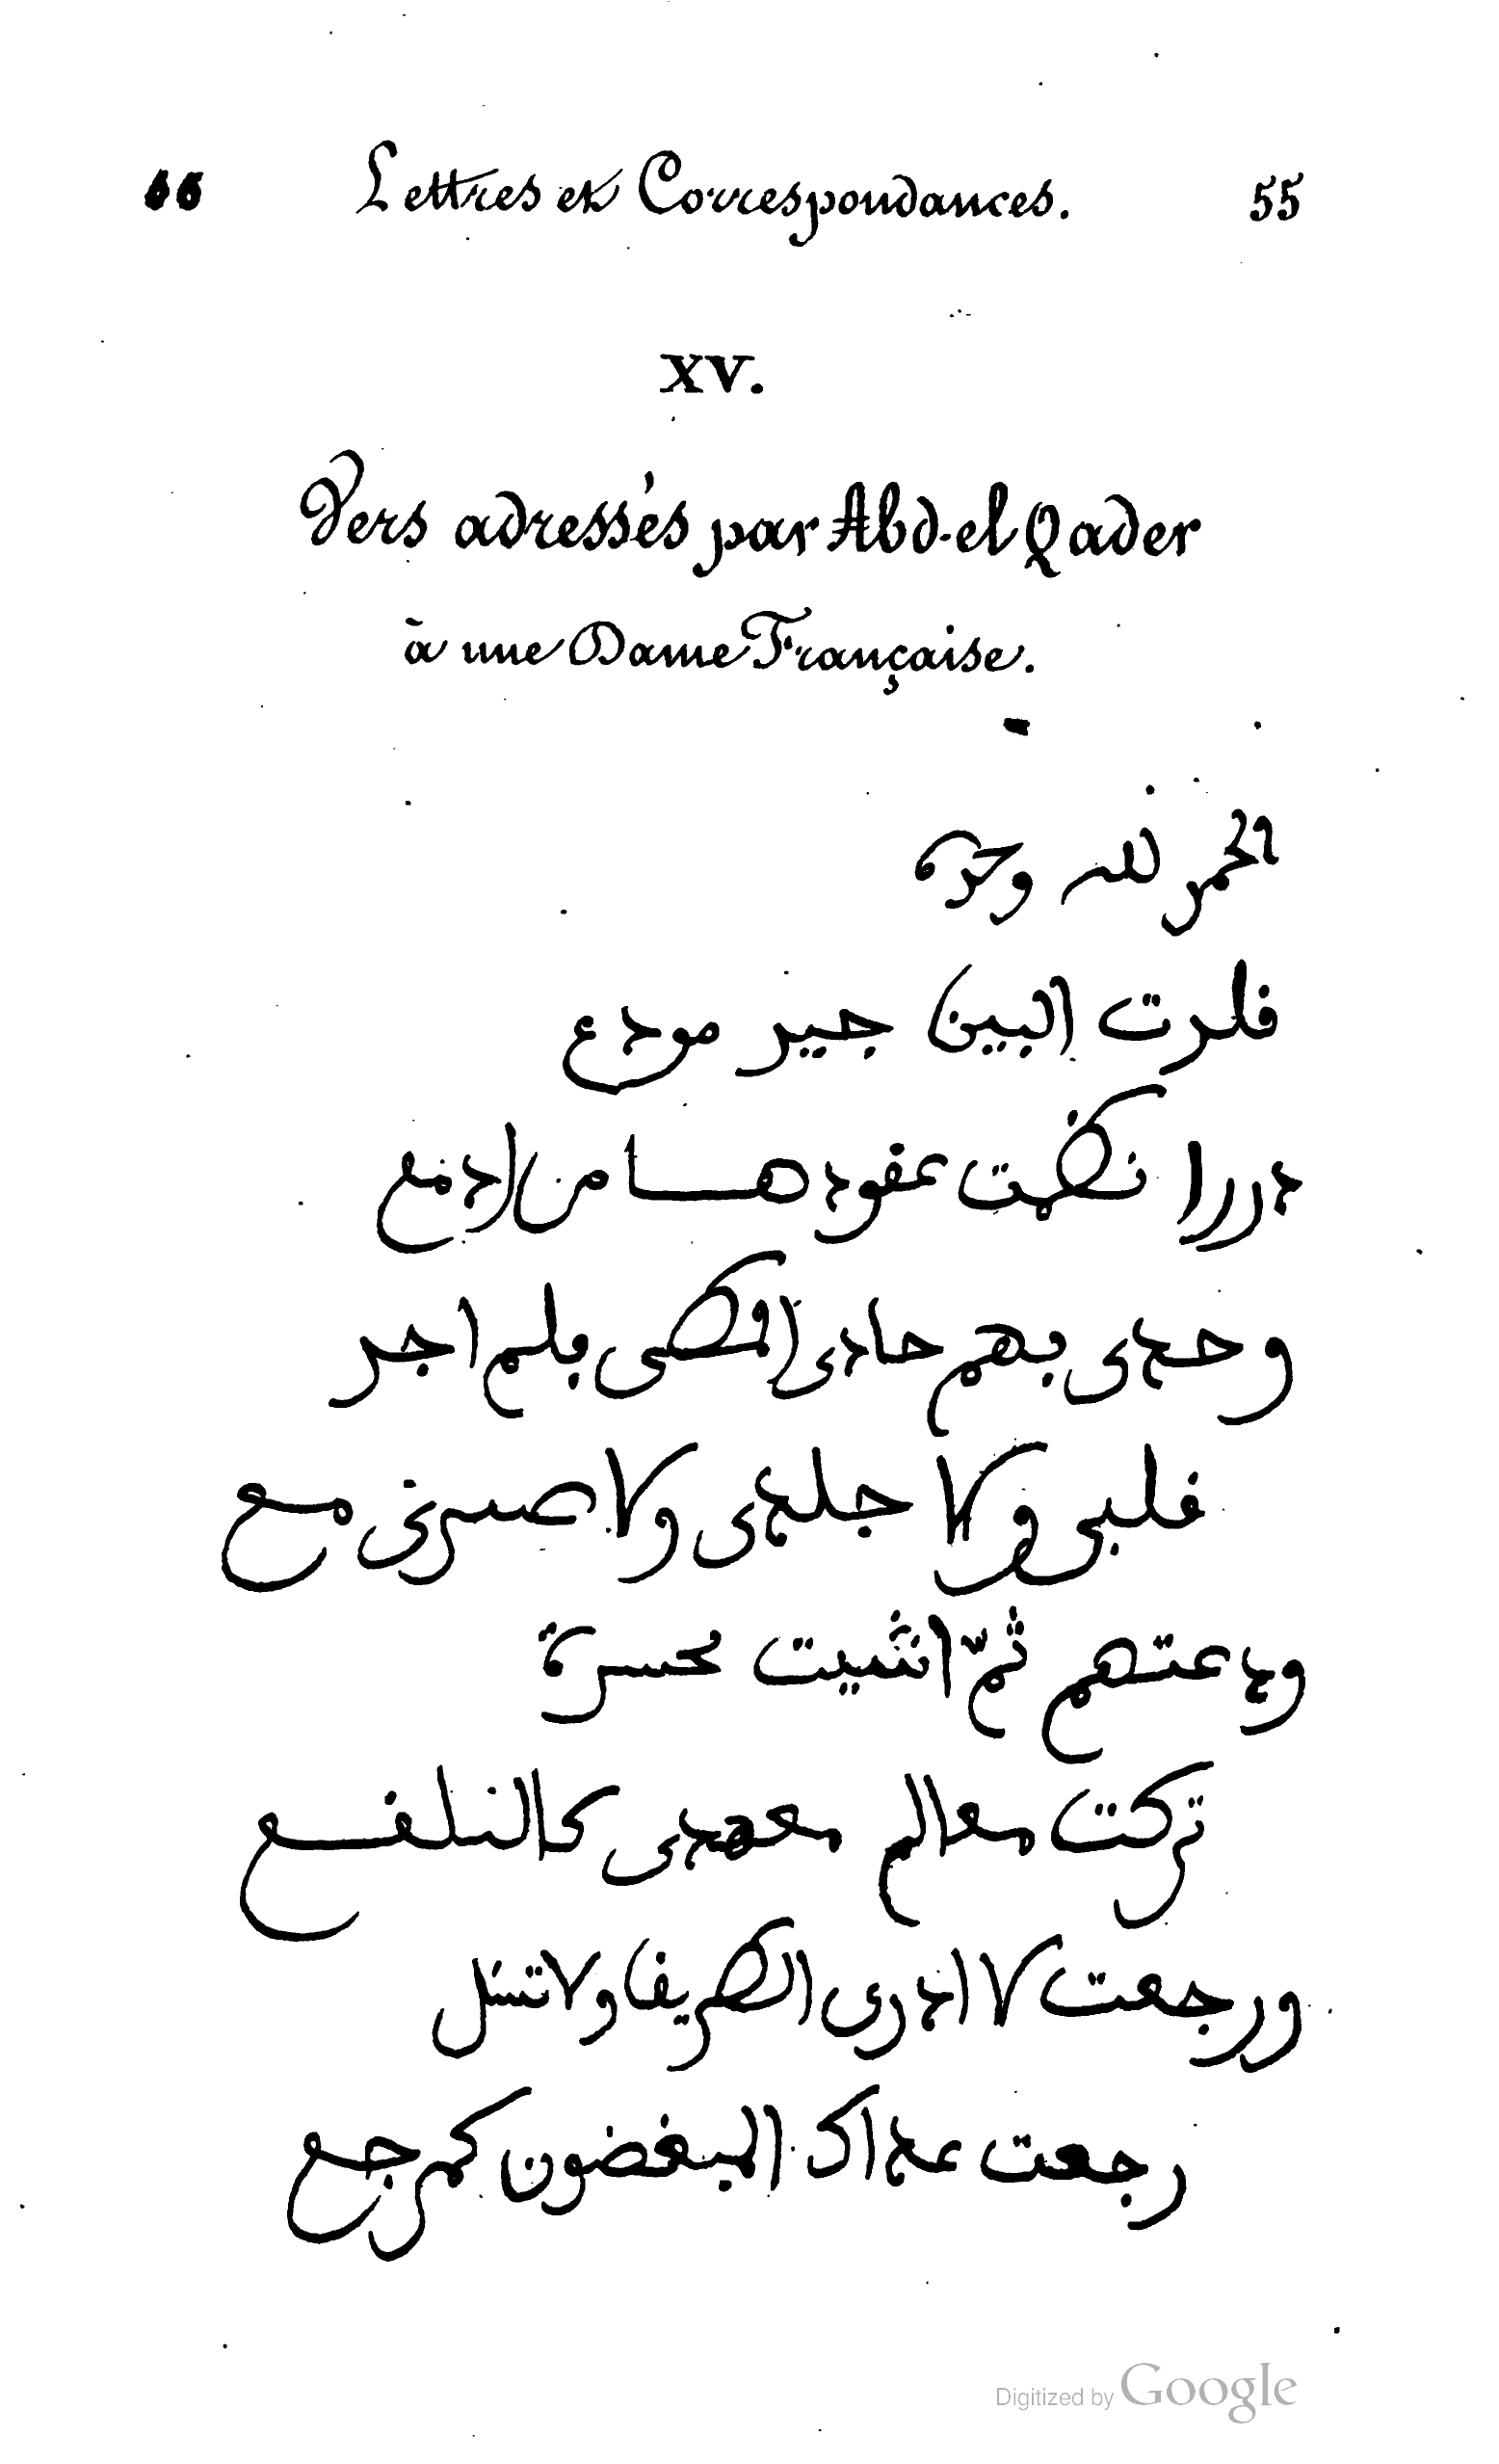 55 Lettres et Correspondances.
XV.
Vers adressés par Abd-el Qader
à une Dame Française.
الحمد لله وحده
قلدت البين جيد مودع
دررا نظمت عقودها من ادمع
وحدى بهم حادى المطى فلم اجد
قلبى ولا جلدى ولا صبرى مع
ودعتهم ثمّ انثيت بحسرة
تركت معالم معهدى كالبلقع
ورجعت لا ادرى الطريق ولا تسل
رجعت عداك المبغضون كمرجع
Digitized by Google